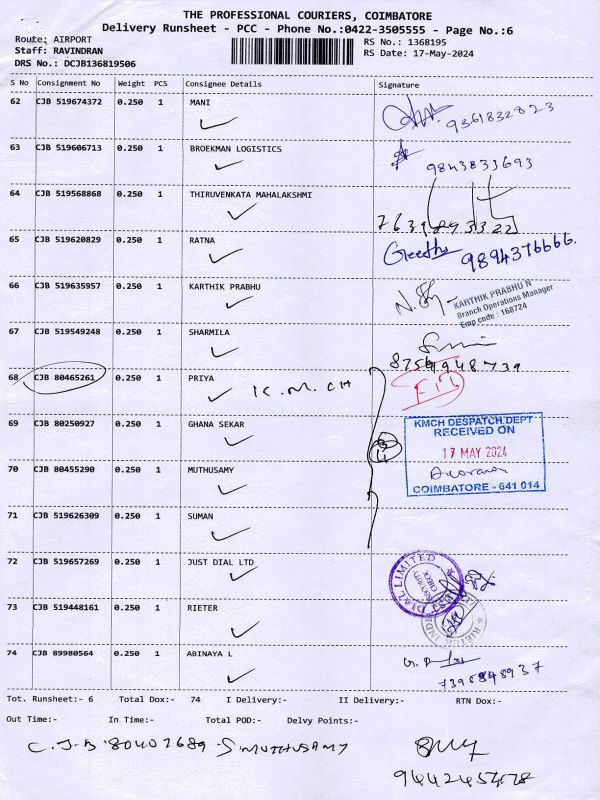 THE PROFESSIONAL COURIERS, COIMBATORE
Delivery Runsheet - PCC - Phone No.:0422-3505555 - Page No.:6
Route: AIRPORT RS No.: 1368195
Staff: RAVINDRAN RS Date: 17-May-2024
DRS No.: DCJB136819506
S No Consignment No Weight PCS Consignee Details Signature
62 CJB 519674372 0.250 1 MANI
9361832823
63 CJB 519606713 0.250 1 BROEKMAN LOGISTICS
9843833693
64 CJB 519568868 0.250 1 THIRUVENKATA MAHALAKSHMI
65 CJB 519620829 0.250 1 RATNA
Geetha 9894376666.
66 CJB 519635957 0.250 1 KARTHIK PRABHU
KARTHIK PRABHU N
Branch Operations Manager
Emp code : 168724
67 CJB 519549248 0.250 1 SHARMILA
68 CJB 80465261 0.250 1 PRIYA K.M.CH
69 CJB 80250927 0.250 1 GHANA SEKAR
KMCH DESPATCH DEPT
RECEIVED ON
17 MAY 2024
COIMBATORE - 641 014
70 CJB 80455290 0.250 1 MUTHUSAMY
71 CJB 519626309 0.250 1 SUMAN
72 CJB 519657269 0.250 1 JUST DIAL LTD
DIAL LIMITED
SECURITY
CHECK
73 CJB 519448161 0.250 1 RIETER
74 CJB 89980564 0.250 1 ABINAYA L
Tot. Runsheet:- 6 Total Dox:- 74 I Delivery:- II Delivery:- RTN Dox:-
Out Time:- In Time:- Total POD:- Delvy Points:-
C.J.B 80407689 - S.MUTHUSAMY